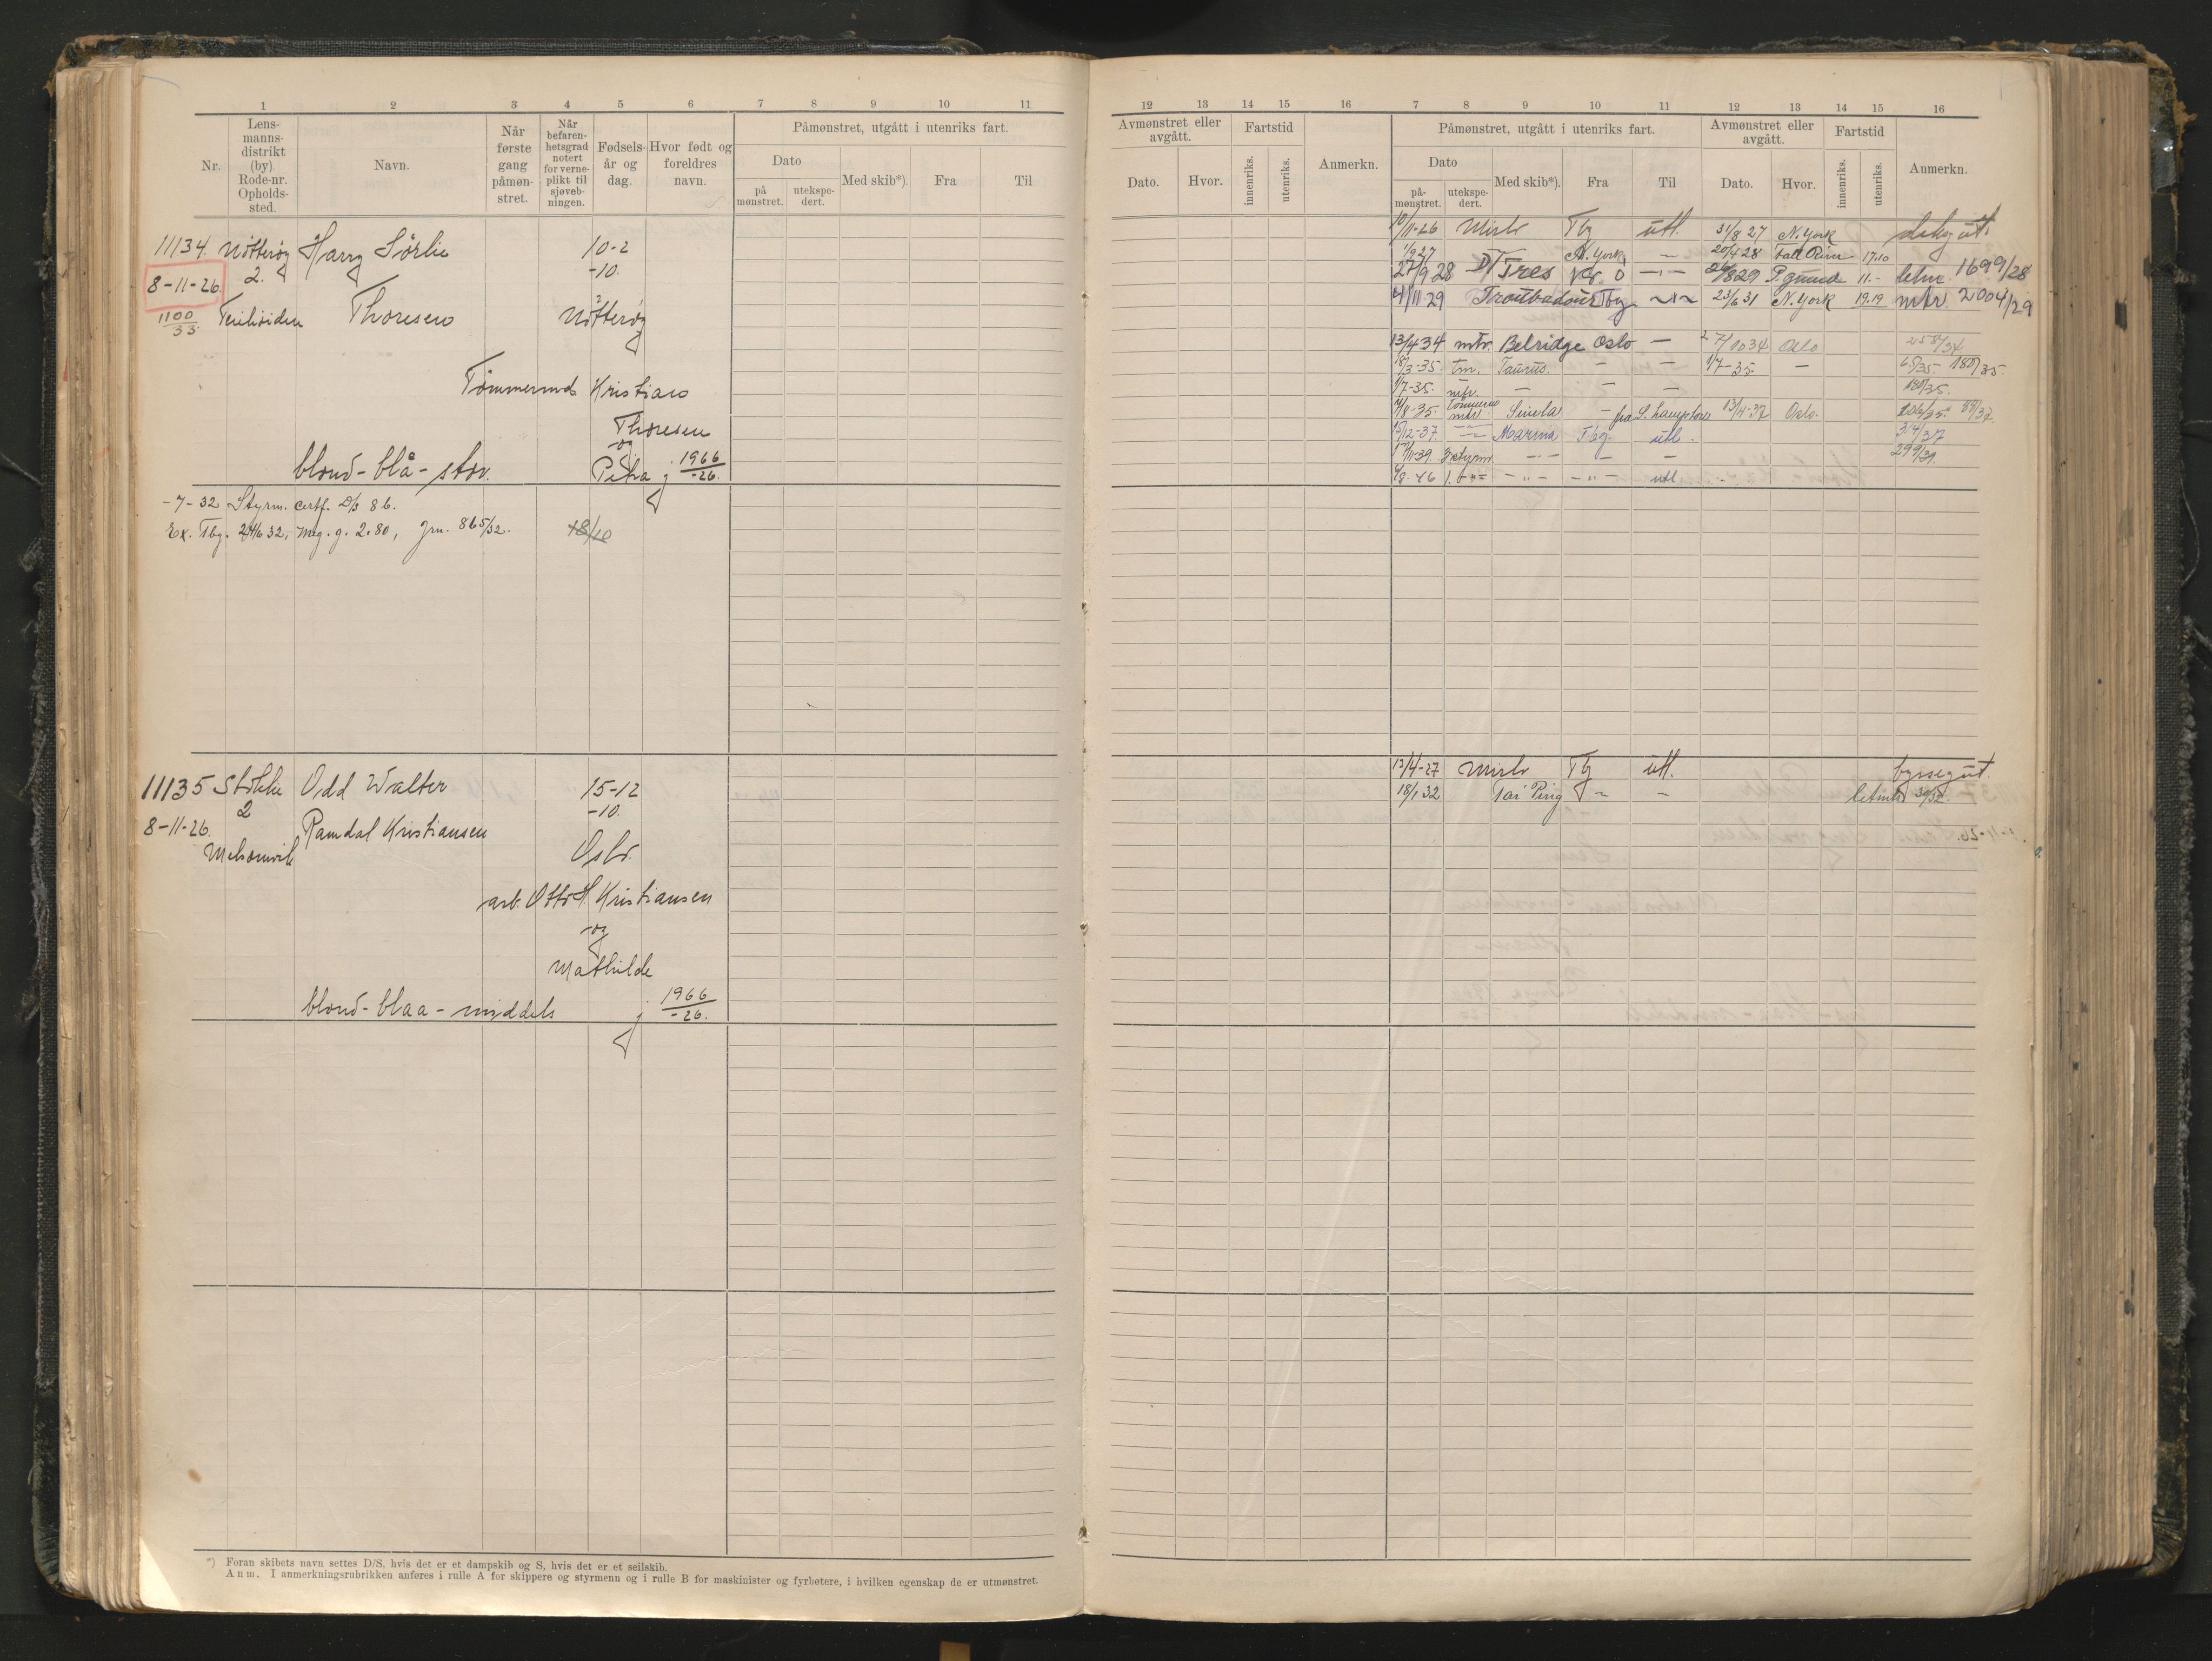 1 2 3 4 5 6 7 8 9 10 11
Nr.
Lens-
manns-
distrikt
(by)
Rode-nr.
Opholds-
sted.
Navn.
Når
første
gang
påmøn-
stret.
Når
befaren-
hetsgrad
notert
for verne-
plikt til
sjøveb-
ningen.
Fødsels-
år og
dag.
Hvor født og
foreldres
navn.
Påmønstret, utgått i utenriks fart.
Dato
på
mønstret.
utekspe-
dert.
Med skib*).
Fra
Til
11134. Nøtterøy Harry Sørlie 10-2
8-11-26. 2. -10.
1100/33 Thoresen Nøtterøy
Tømmermd Kristian
Thoresen
og
blond - blå - stor. Petra j 1966/-26.
-7-32 Styrm. certf. D/S 86.
Ex. Tbg. 24/6 32, meg. g. 2.80, Jrn. 865/32. 18/10
11135 Stokke Odd Walter 15-12
2 -10.
8-11-26. Ramdal Kristiansen
Melsomvik Oslo.
arb. Otto H. Kristiansen
og
Mathilde
blond - blaa - middels j 1966/-26.
*) Foran skibets navn settes D/S, hvis det er et dampskib og S, hvis det er et seilskib.
Anm. I anmerkningsrubrikken anføres i rulle A for skippere og styrmenn og i rulle B for maskinister og fyrbøtere, i hvilken egenskap de er utmønstret.
12 13 14 15 16 7 8 9 10 11 12 13 14 15 16
Avmønstret eller
avgått.
Dato.
Hvor.
Fartstid
innenriks.
utenriks.
Anmerkn.
Påmønstret, utgått i utenriks fart.
Dato
på-
mønstret.
utekspe-
dert.
Med skib*).
Fra
Til
Avmønstret eller
avgått.
Dato.
Hvor.
Fartstid
innenriks.
utenriks.
Anmerkn.
10/11-26 Mirlo Tbg utl. 31/8 27 N. York
1/9 27 N. York — 20/4 28 Fall River 17.10
27/9 28 D/ Tres Kr. O -"- 829 11.- letm 1699/28
4/11 29 Troubadour Tbg -"- 23/6 31 N. York 19.19 mtr. 2004/29
13/4 34 mtr. Belridge Oslo — 27/10 34 Oslo 258/34
18/3-35. tm. Taurus. — — 1/7-35. — 65/35. 180/35.
1/7-35. mtr. — — — 180/35.
/8-35. mtr. — fra 13/4-37 Oslo. 88/37
15/12-37 -"- Marina Tbg. utl. 314/37
/11-39. 3 styrm. -"- — — 299/39.
/8-46 1. -"- -"- -"- utl.
12/4-27 Mirlo Tbg utl. byssegut.
18/1 32 Tai Ping — — letmtr 30/32.